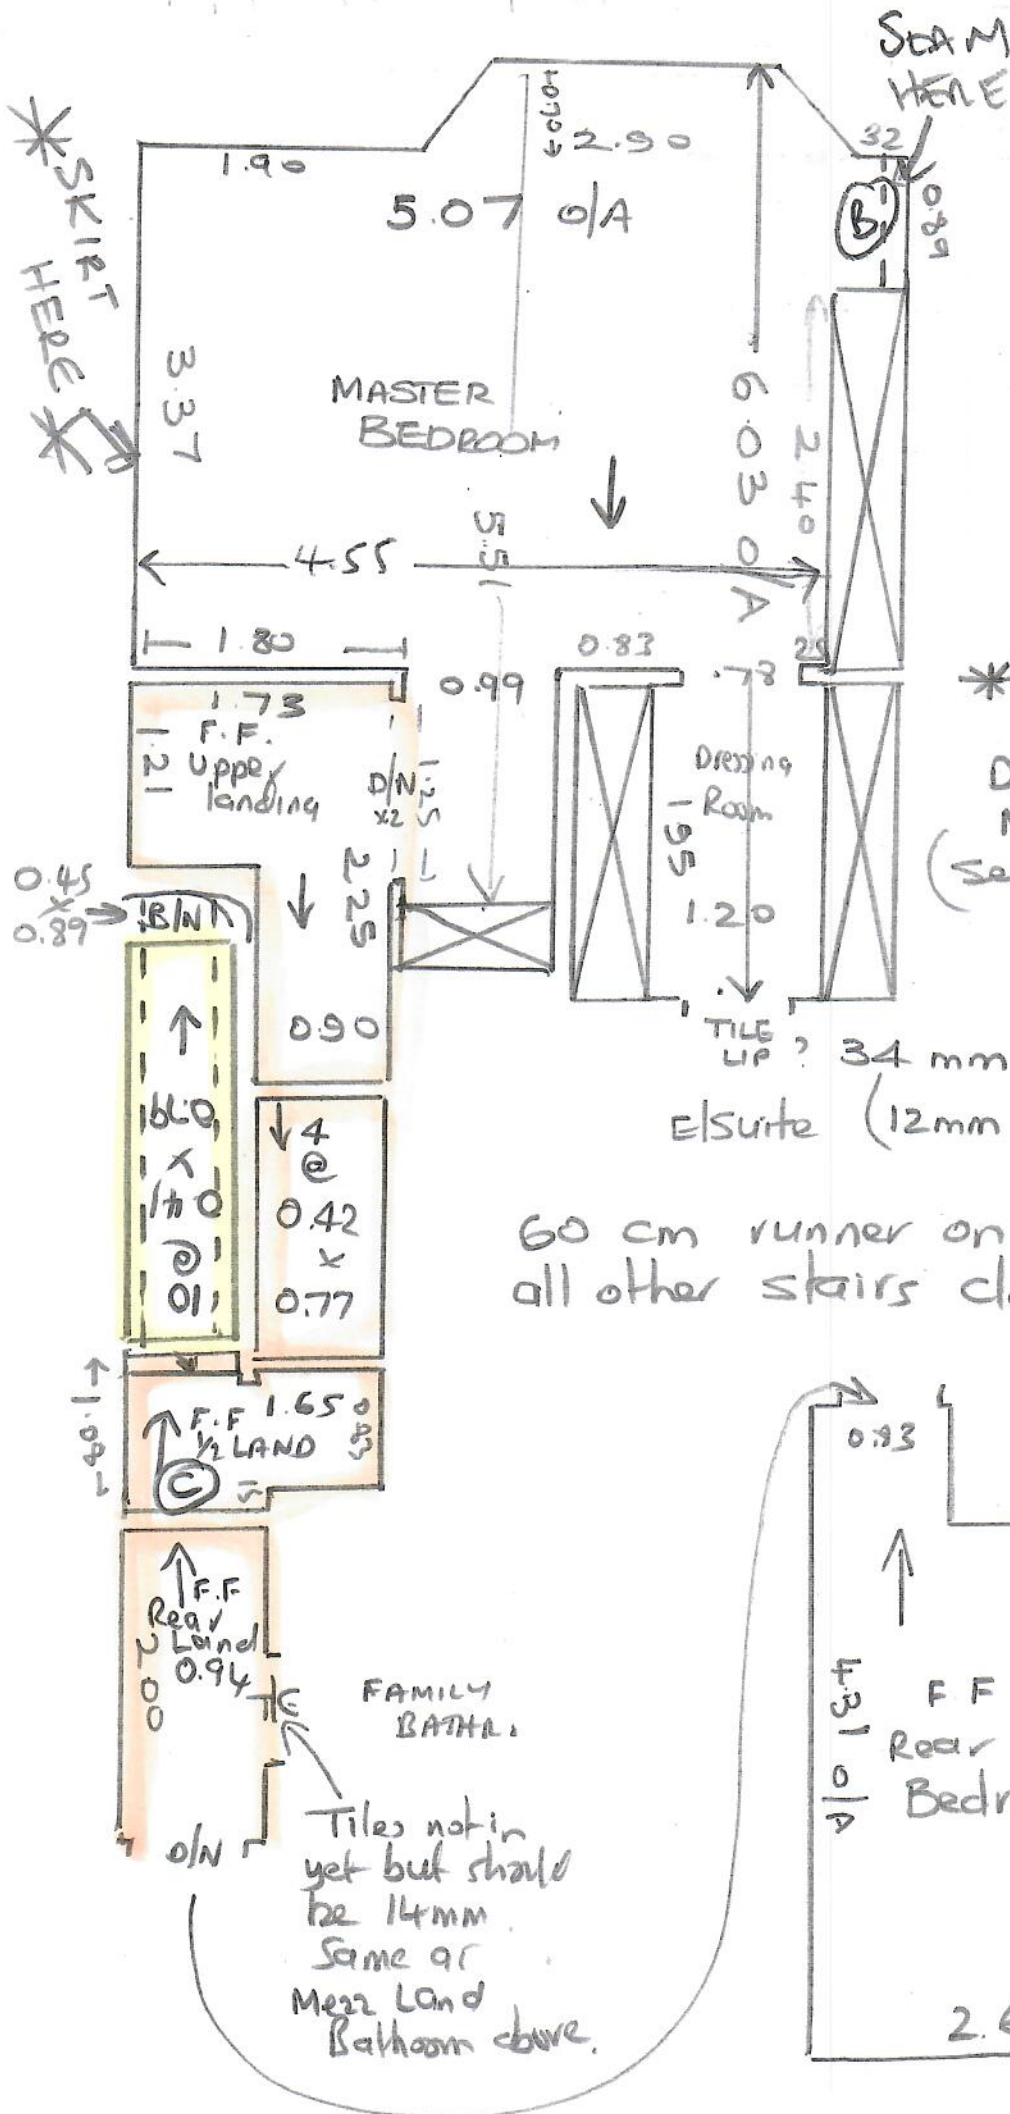 SEAM
HERE
32
0.89
B
0.70
2.90
1.90
5.07 O/A
* SKIRT
HERE *
3.37
MASTER
BEDROOM
6.03 O/A
2.40
5.51
4.55
1.80
0.83
25
.78
0.99
*
1.73
F.F.
Upper
landing
1.21
D/N
x2
1.25
2.25
Dressing
Room
1.95
1.20
0.45
x
0.89
B/N
0.90
TILE
LIP ?
34 mm
E/Suite (12mm
10
@
0.47
x
0.79
4
@
0.42
x
0.77
60 cm runner on
all other stairs
1.09
F.F
1/2 LAND
1.65
0.83
C
15
0.83
F.F
Rear
Land
0.94
2.00
FAMILY
BATHR.
D/N
Tiles not in
yet but should
be 14mm
Same as
Mezz Land
Bathoom above.
4.31 O/A
F F
Rear
Bedr
2.6